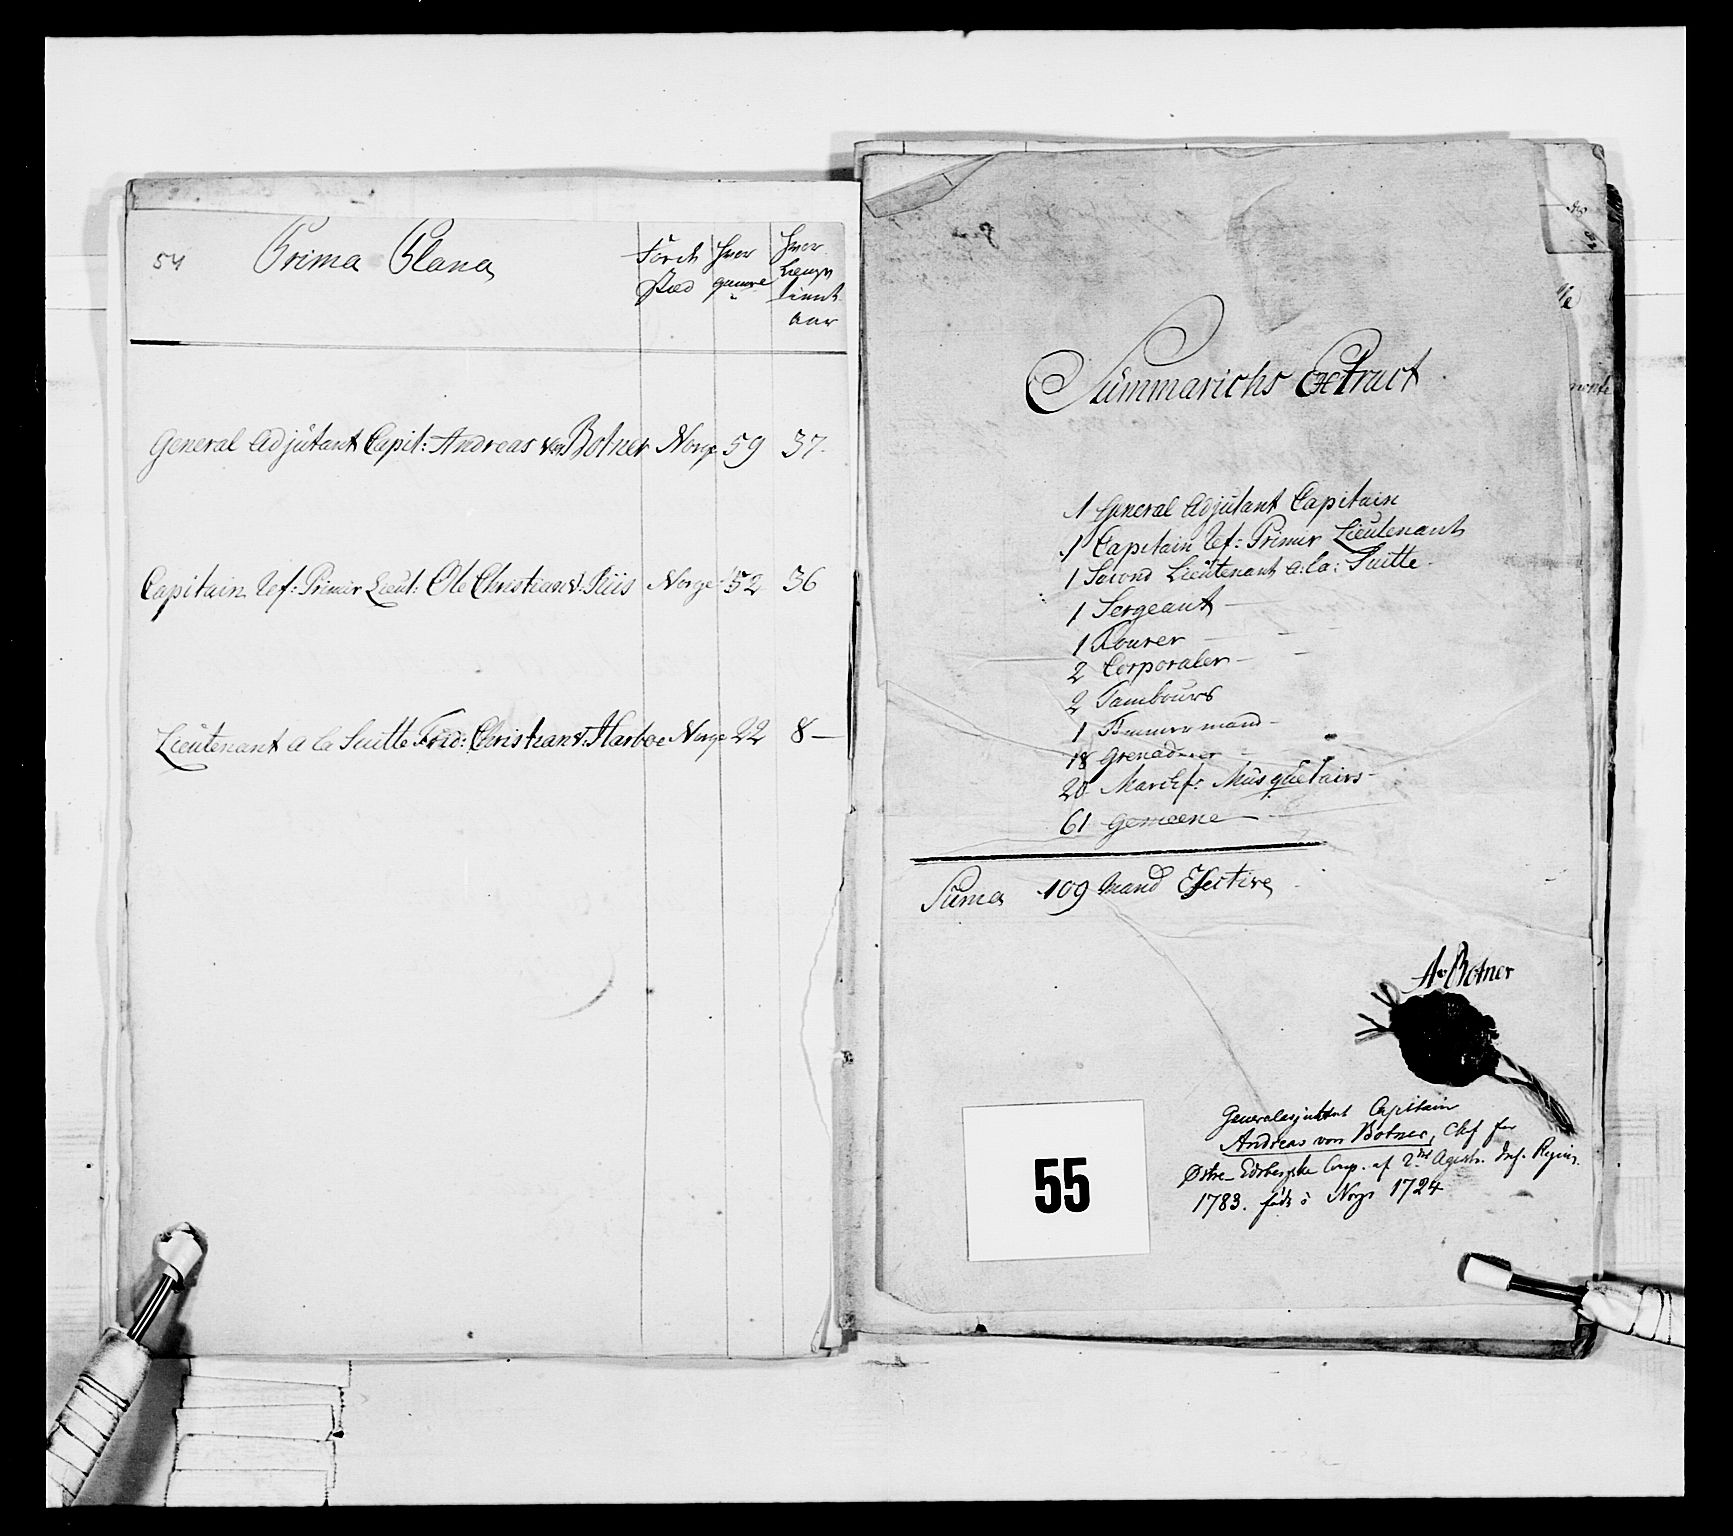 54 Prima Plana
Föede Stæd
Hvor gamle
Hvor Længe tient Aar
General Adjutant Capit: Andreas von Botner Norge 59 37.
Capitain Ref: Primier Lieut: Ole Christian v: Riis Norge 52 36
Lieutenant a la Suitte Frid: Christian v: Harboe Norge 22 8 —
Summarichs Extract
1 General Adjutant Capitain
1 Capitain Ref: Primier Lieutenant
1 Second Lieutenant a: la: Suitte
1 Sergeant —
1 Fourer —
2 Corporaler —
2 Tambours
1 Tømmermand —
18 Grenaderer —
20 Musquetairs —
61 Gemeene —
Suma 109 Mand Efective
Av Botner
55
Generaladjutant Capitain
Andreas von Botner, Chef for
Østre- Comp. af 2det Agersh. Inf. Regim.
1783. født i Norge 1724